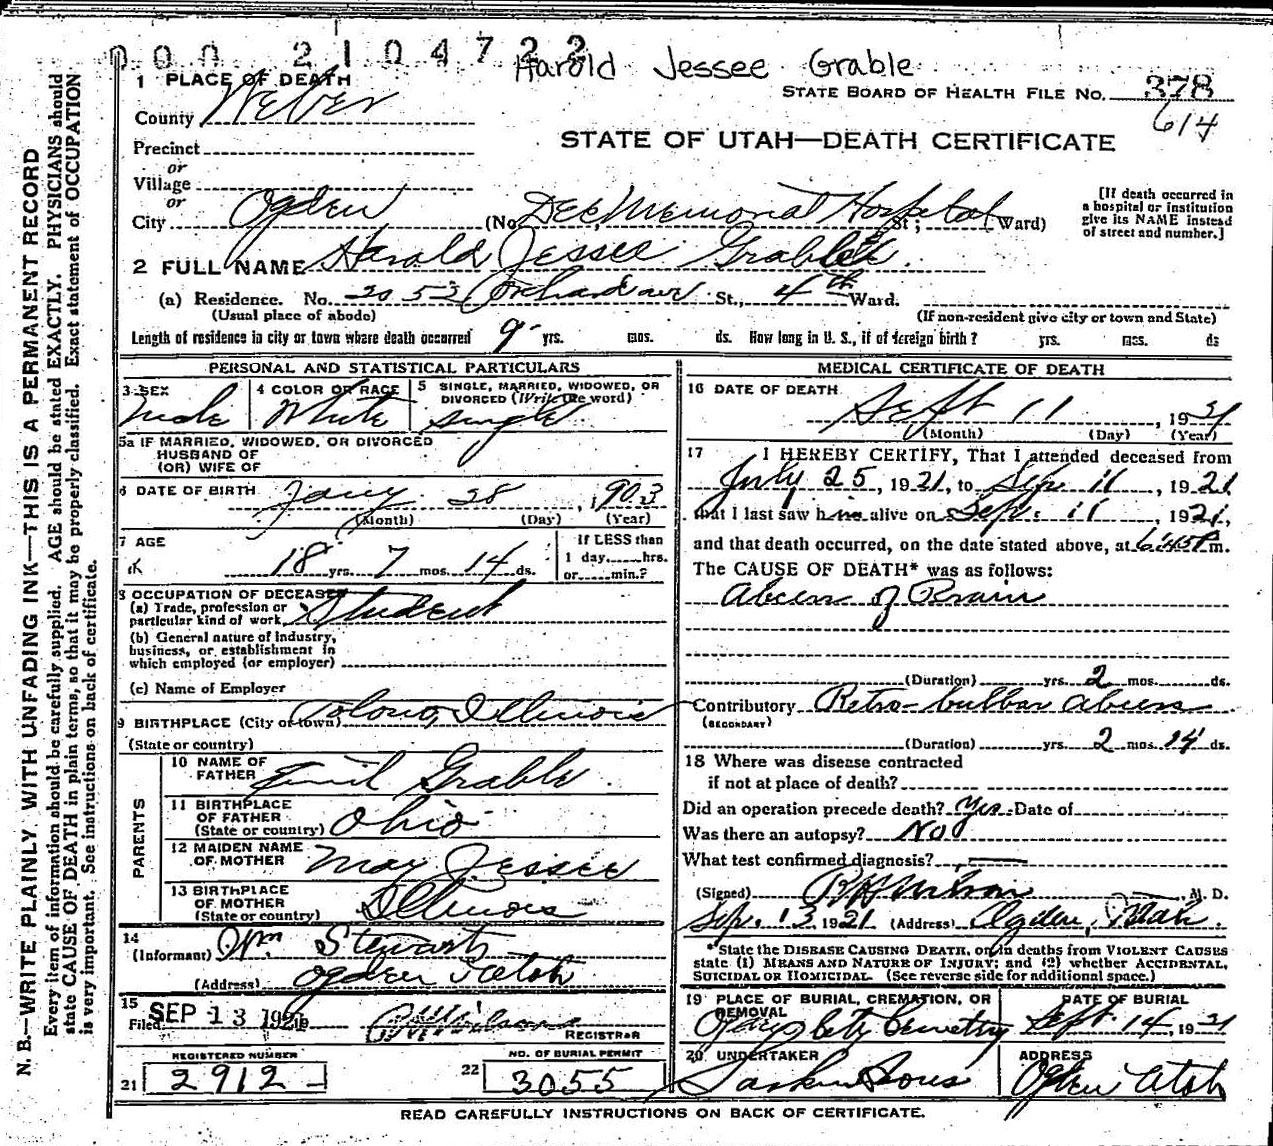 000 2104722
Harold Jessee Grable
STATE BOARD OF HEALTH FILE No. 378
614
1 PLACE OF DEATH
County Weber
STATE OF UTAH—DEATH CERTIFICATE
Precinct
or
Village
or
City Ogden (No. Dee Memorial Hospital St; Ward)
[If death occurred in
a hospital or institution
give its NAME instead
of street and number.]
2 FULL NAME Harold Jessee Grable
(a) Residence. No. 2052 Orchard ave St., 4th Ward.
(Usual place of abode) (If non-resident give city or town and State)
Length of residence in city or town where death occurred 9 yrs. mos. ds. How long in U. S., if of foreign birth? yrs. mos. ds
PERSONAL AND STATISTICAL PARTICULARS
3 SEX Male
4 COLOR OR RACE White
5 SINGLE, MARRIED, WIDOWED, OR
DIVORCED (Write the word)
single
5a IF MARRIED, WIDOWED, OR DIVORCED
HUSBAND OF
(OR) WIFE OF
6 DATE OF BIRTH Jany 28, 1903
(Month) (Day) (Year)
7 AGE
18 yrs 7 mos. 14 ds.
If LESS than
1 day, hrs.
or min.?
8 OCCUPATION OF DECEASED
(a) Trade, profession or
particular kind of work Student
(b) General nature of industry,
business, or establishment in
which employed (or employer)
(c) Name of Employer
9 BIRTHPLACE (City or town) Tolono, Illinois
(State or country)
PARENTS
10 NAME OF
FATHER Emil Grable
11 BIRTHPLACE
OF FATHER
(State or country) Ohio
12 MAIDEN NAME
OF MOTHER May Jessee
13 BIRTHPLACE
OF MOTHER
(State or country) Illinois
14
(Informant) Wm. Stewart
(Address) Ogden Utah
15
Filed SEP 13 1921
REGISTRAR
REGISTERED NUMBER
21 2912
NO. OF BURIAL PERMIT
22 3055
MEDICAL CERTIFICATE OF DEATH
16 DATE OF DEATH
Sept 11, 1921
(Month) (Day) (Year)
17 I HEREBY CERTIFY, That I attended deceased from
July 25, 1921, to Sep. 11, 1921
that I last saw h im alive on Sep. 11, 1921,
and that death occurred, on the date stated above, at 6:45 P m.
The CAUSE OF DEATH* was as follows:
Abcess of Brain
(Duration) yrs. 2 mos. ds.
Contributory Retro-bulbar Abcess
(SECONDARY)
(Duration) yrs. 2 mos 14 ds.
18 Where was disease contracted
if not at place of death?
Did an operation precede death? Yes Date of
Was there an autopsy? No
What test confirmed diagnosis?
(Signed) M. D.
Sep. 13, 1921 (Address) Ogden, Utah.
*State the DISEASE CAUSING DEATH, or in deaths from VIOLENT CAUSES
state (1) MEANS AND NATURE OF INJURY; and (2) whether ACCIDENTAL,
SUICIDAL OR HOMICIDAL. (See reverse side for additional space.)
19 PLACE OF BURIAL, CREMATION, OR
REMOVAL
Ogden City Cemetery
DATE OF BURIAL
Sept. 14, 1921
20 UNDERTAKER
Larkin Sons
ADDRESS
Ogden Utah
READ CAREFULLY INSTRUCTIONS ON BACK OF CERTIFICATE.
N. B.—WRITE PLAINLY WITH UNFADING INK—THIS IS A PERMANENT RECORD
Every item of information should be carefully supplied. AGE should be stated EXACTLY. PHYSICIANS should
state CAUSE OF DEATH in plain terms, so that it may be properly classified. Exact statement of OCCUPATION
is very important. See instructions on back of certificate.